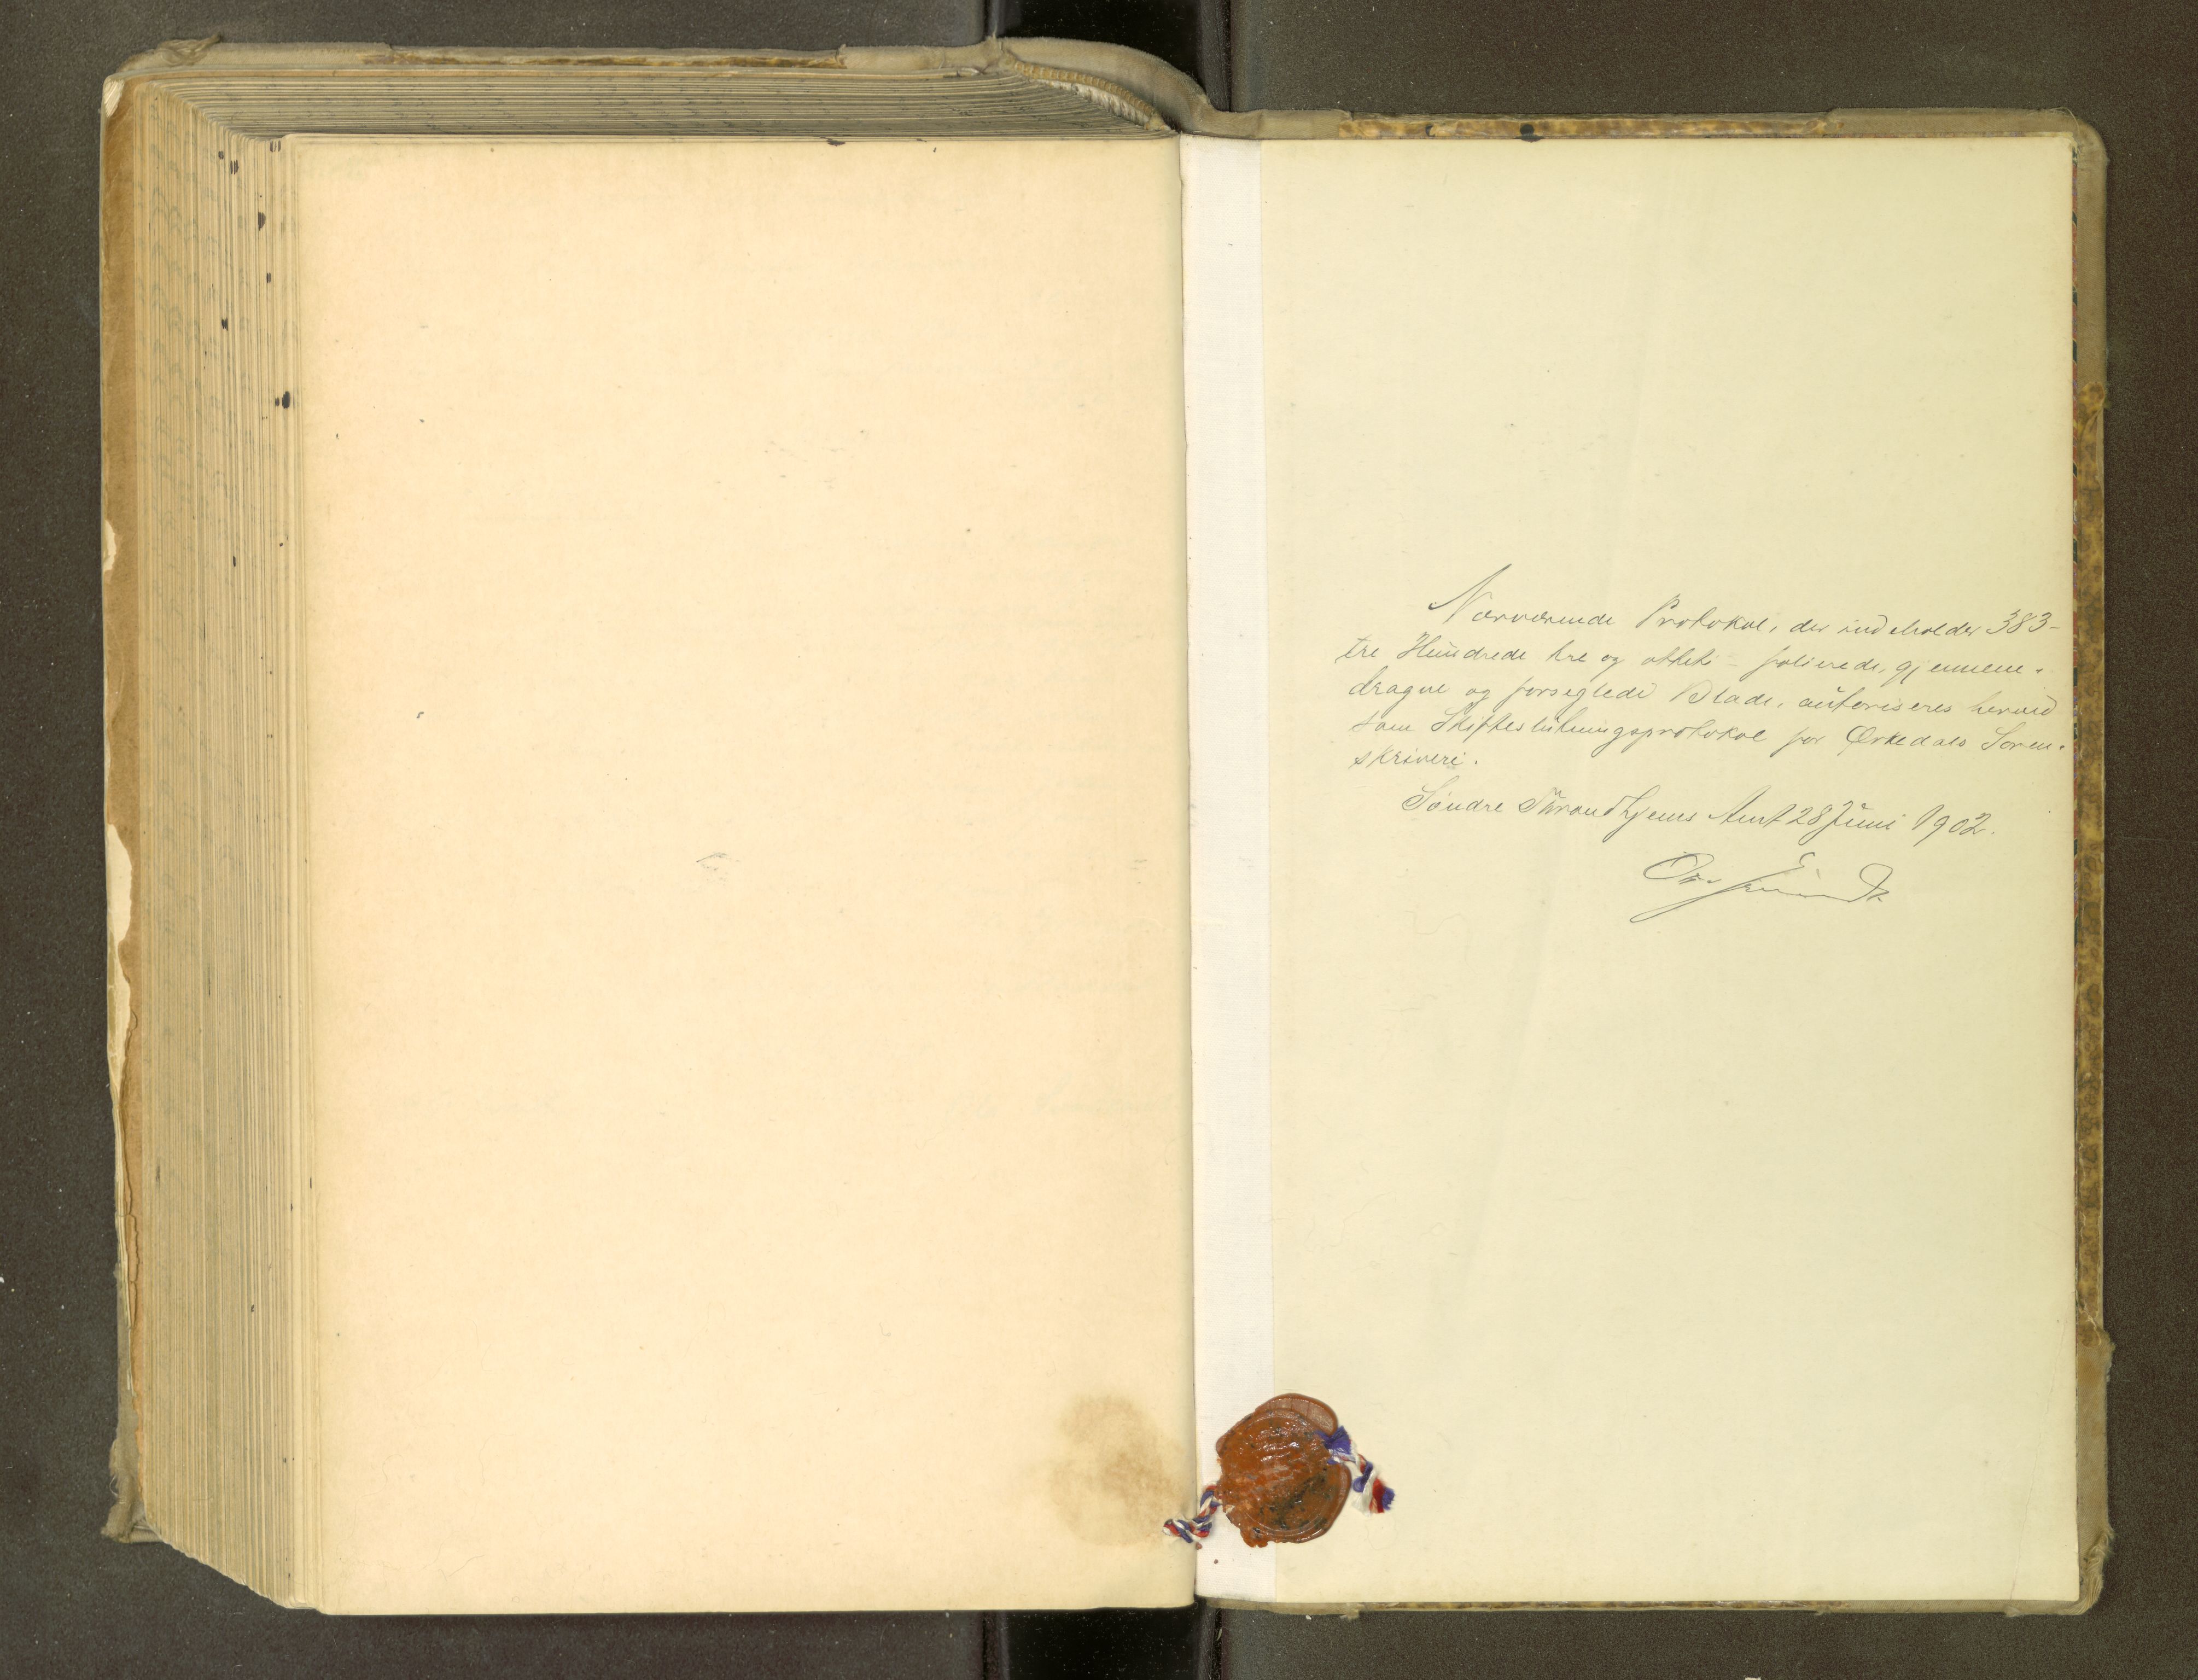 Nærværende Protokol, der indeholder 383-
tre Hundrede tre og otteti - folierede, gjennem-
dragne og forseglede Blade, autoriseres herved
som Skifteslutningsprotokol for Orkedals Soren-
skriveri.
Søndre Throndhjems Amt 28 Juni 1902.